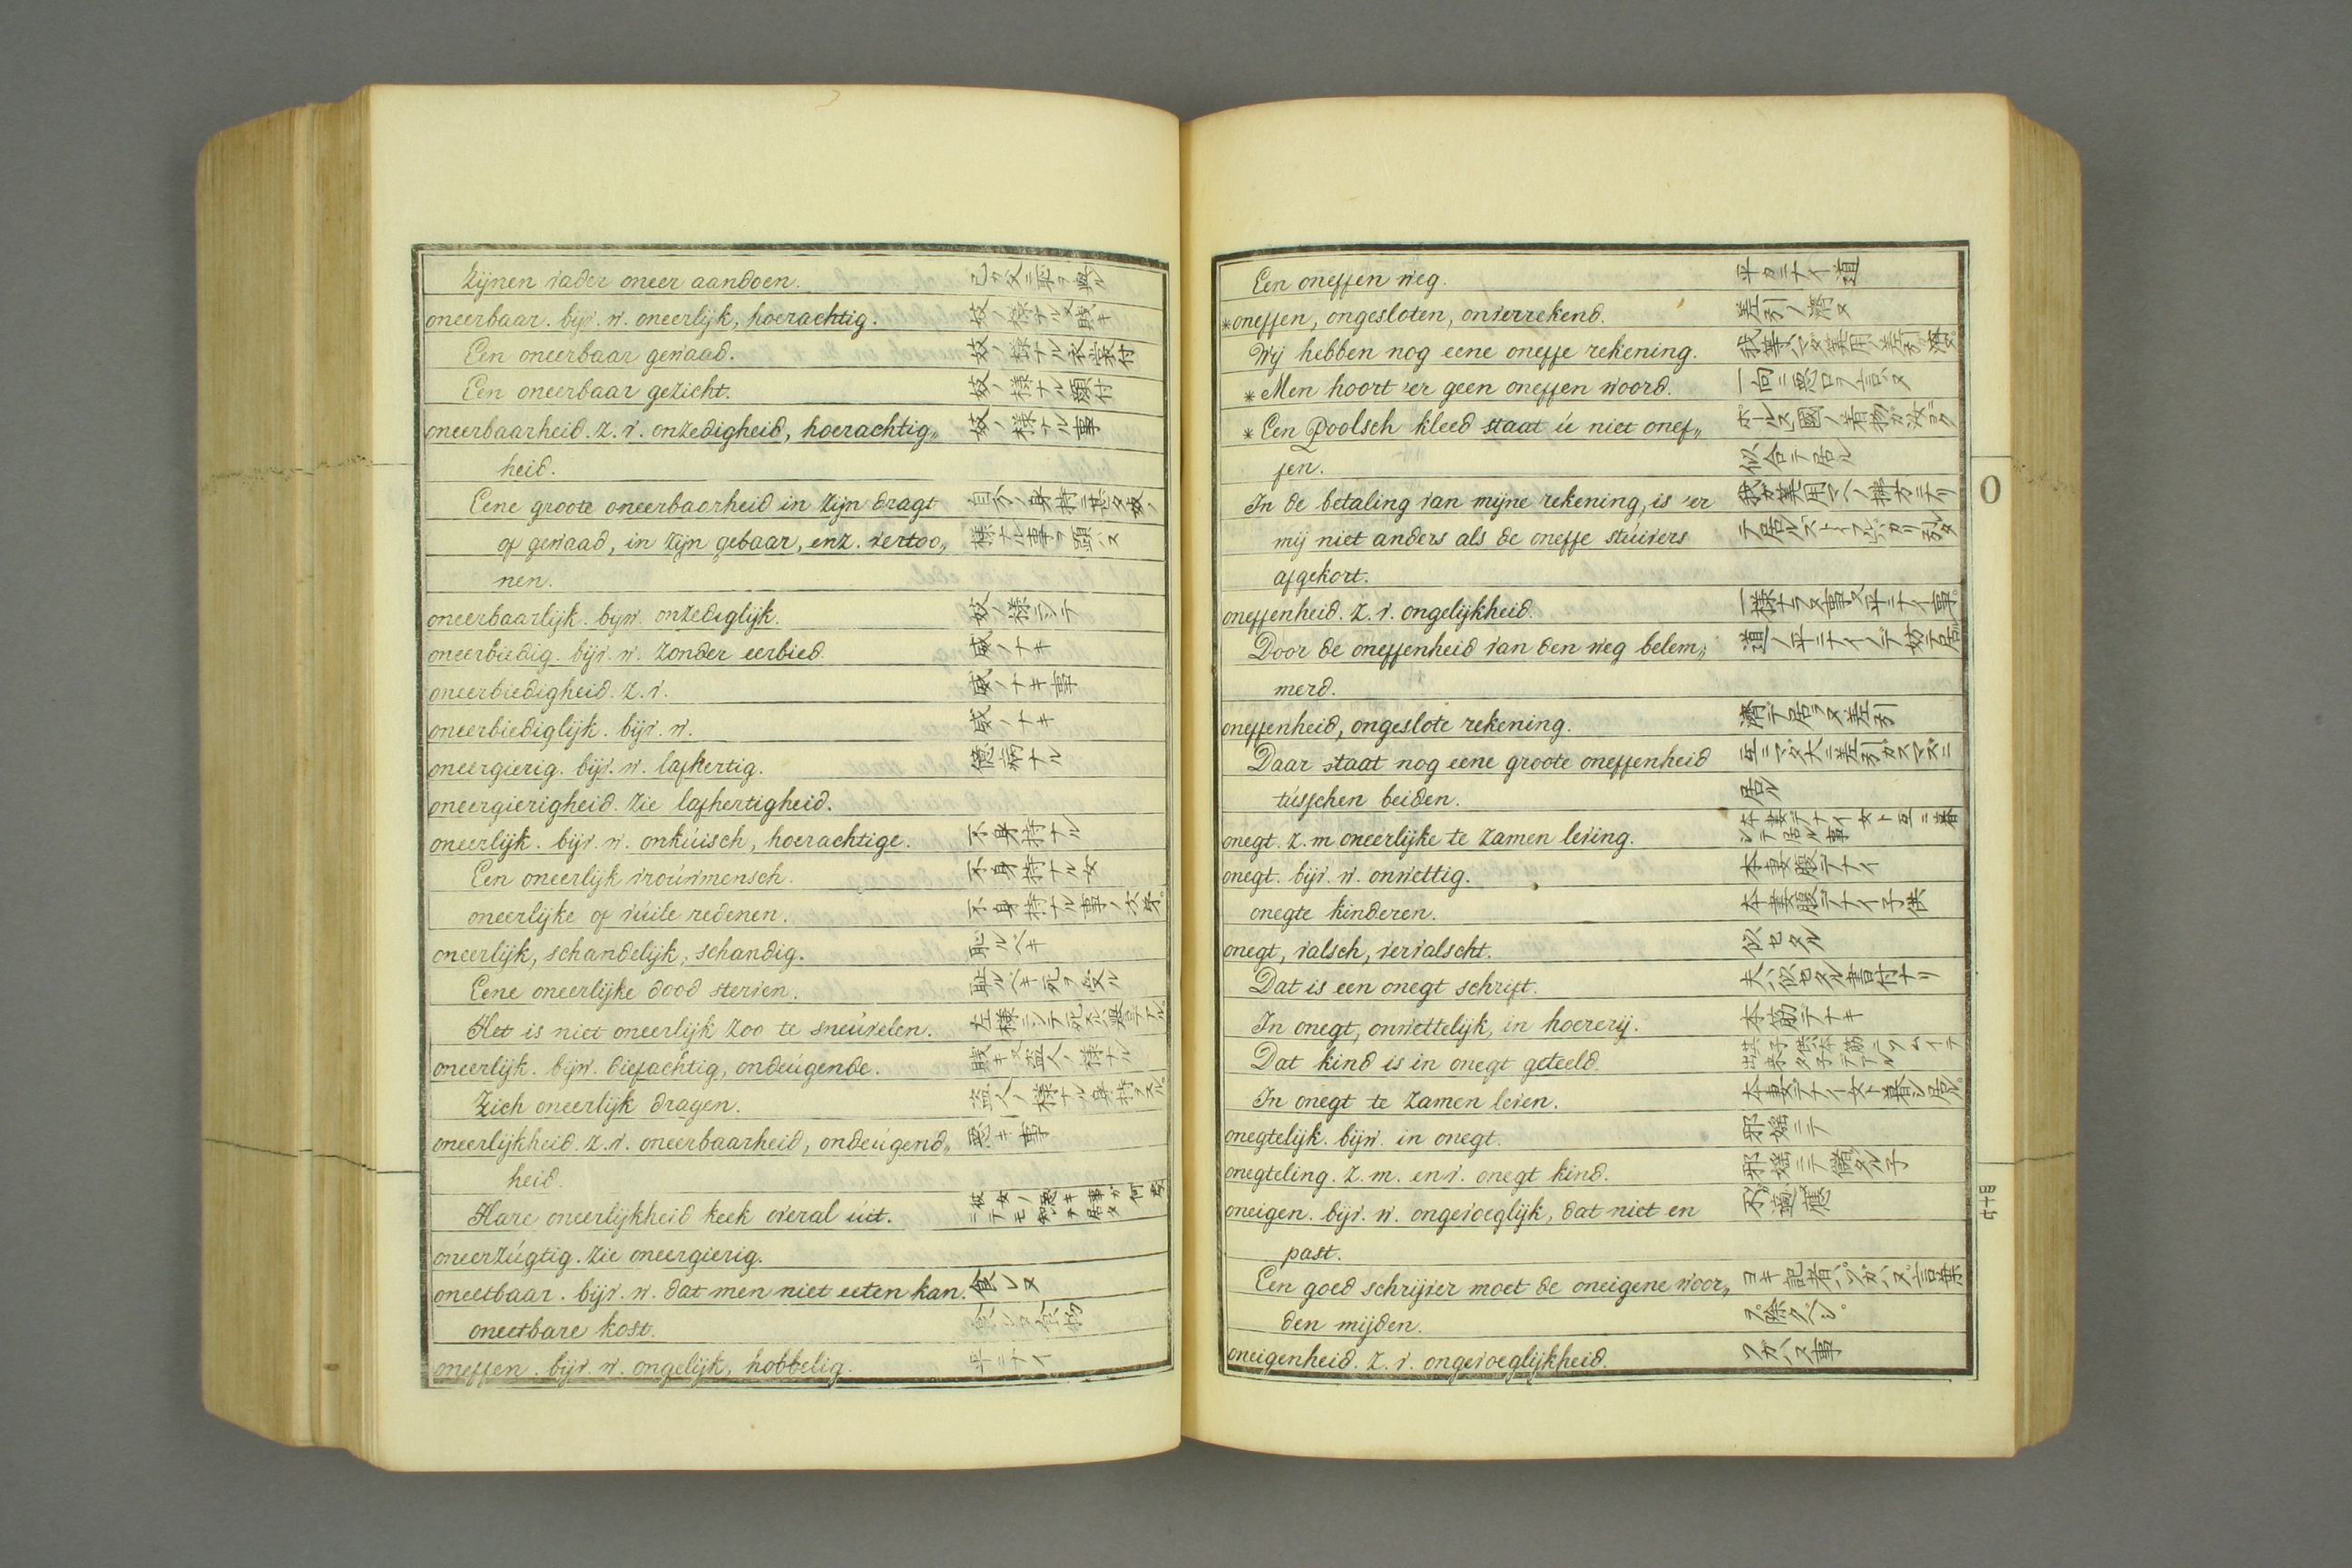 Zijnen vader oneer aandoen. 己ガ父ニ恥ヲ與ル
oneerbaar. bijv. w. oneerlijk, hoerachtig. 妓ノ様ナル又賎キ
Een oneerbaar gewaad. 妓ノ様ナル衣裳付
Een oneerbaar gezicht. 妓ノ様ナル顔付
oneerbaarheid. z. v. onzedigheid, hoerachtig„ 妓ノ様ナル事
heid.
Eene groote oneerbaarheid in zijn dragt 自分ノ身持ニ甚タ妓ノ
of gewaad, in zijn gebaar, enz. vertoo„ 様ナル事ヲ顕ハス
nen.
oneerbaarlijk. bijw. onzediglijk. 妓ノ様ニシテ
oneerbiedig. bijv. w. zonder eerbied. 威ノナキ
oneerbiedigheid. z. v. 威ノナキ事
oneerbiediglijk. bijv. w. 威ノナキ
oneergierig. bijv. w. lafhertig. 億病ナル
oneergierigheid. zie lafhertigheid.
oneerlijk. bijv. w. onkúisch, hoerachtige. 不身持ナル
Een oneerlijk vroúwmensch. 不身持ナル女
oneerlijke of vúile redenen. 不身持ナル事ノ次第
oneerlijk, schandelijk, schandig. 恥ルベキ
Eene oneerlijke dood sterven. 恥ルベキ死ヲ致ル
Het is niet oneerlijk zoo te sneúvelen. 左様ニシテ死
oneerlijk. bijw. diefachtig, ondeúgende. 賎キ又盗人ノ様ナル
Zich oneerlijk dragen. 盗人ノ様ナル身持ヲスル
oneerlijkheid. z. v. oneerbaarheid, ondeúgend„ 悪キ事
heid.
Hare oneerlijkheid keek overal úit. 彼女ノ悪キ事ガ何處ニテモ知レテ居タ
oneerzúgtig. zie oneergierig.
oneetbaar. bijv. w. dat men niet eeten kan. 食レヌ
oneetbare kost. 食レヌ食物
oneffen. bijv. w. ongelijk, hobbelig. 平ニナイ
Een oneffen weg. 平カニナイ道
*oneffen, ongesloten, onverrekend. 差引ノ濟ヌ
Wij hebben nog eene oneffe rekening. 我等ハマダ算用ノ差引濟ヌ
* Men hoort 'er geen oneffen woord. 一向ニ悪口ヲ言ハヌ
* Een Poolsch kleed staat ú niet onef„ ポールス國ノ着物ガ汝ニヨク
fen. 似合テ居ル
In de betaling van mijne rekening, is 'er 我ガ算用
mij niet anders als de oneffe stúivers
afgekort.
oneffenheid. z. v. ongelijkheid. 一様ナラヌ事又平ニナイ事
Door de oneffenheid van den weg belem„ 道ノ平ニナイノデ妨テ居ル
merd.
oneffenheid, ongeslote rekening. 濟テ居ラヌ差引
Daar staat nog eene groote oneffenheid 互ニマダ大ニ差引ガスマズニ
tússchen beiden. 居ル
onegt. z. m oneerlijke te zamen leving. 本妻デナイ女ト互ニ暮シテ居ル事
onegt. bijv. w. onwettig. 本妻腹デナイ
onegte kinderen. 本妻腹デナイ子供
onegt, valsch, vervalscht. 似セタル
Dat is een onegt schrift. 夫ハ似セタル書付ナリ
In onegt, onwettelijk, in hoererij. 本筋デナキ
Dat kind is in onegt geteeld. 其子供本筋
In onegt te zamen leven. 本妻デナイ女ト暮シ居ル
onegtelijk. bijw. in onegt. 邪婬ニテ
onegteling. z. m. en v. onegt kind. 邪婬ニテ儲タル子
oneigen. bijv. w. ongevoeglijk, dat niet en 不適應
past.
Een goed schrijver moet de oneigene woor„ ヨキ記者ハソガハヌ言葉
den mijden. ヲ除クベシ
oneigenheid. z. v. ongevoeglijkheid. ソガハヌ事
O